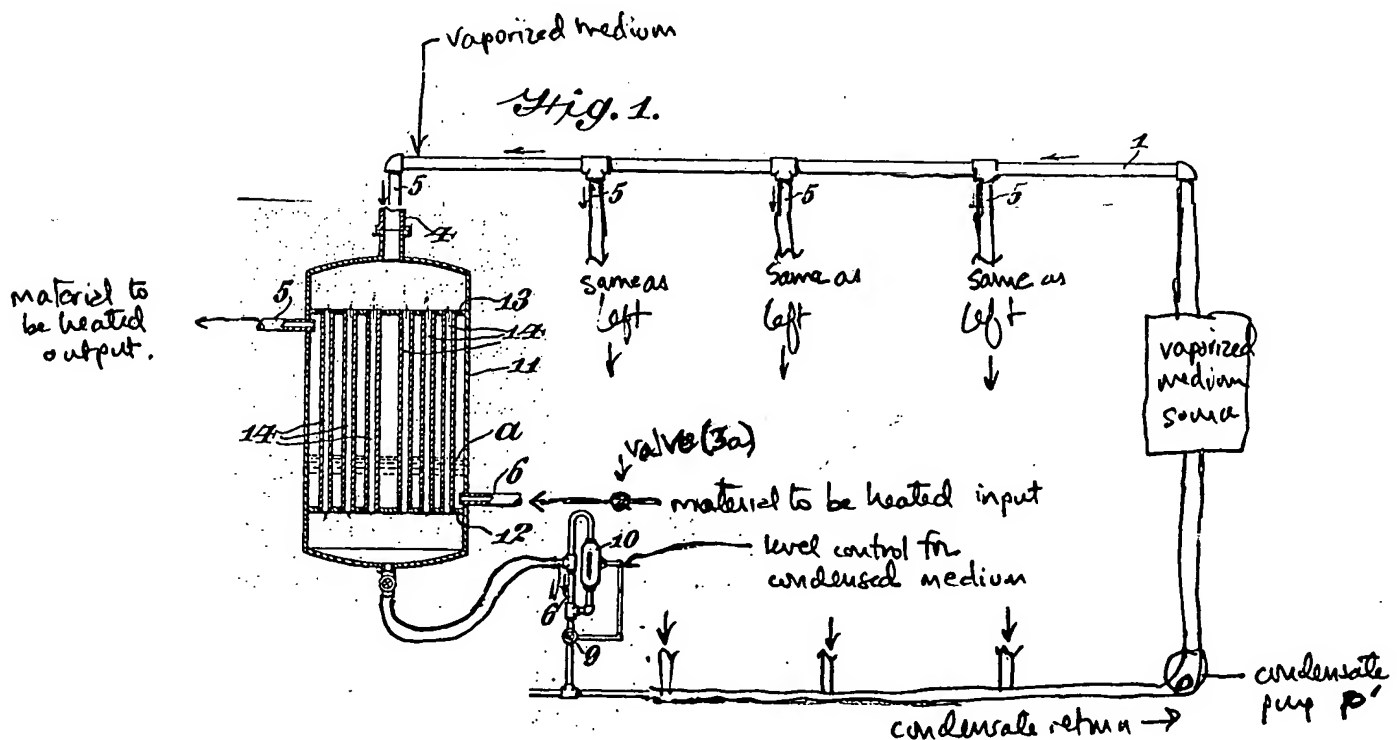 vaporized medium
Fig. 1.
1
5
5
5
5
4
same as
left
Same as
left
same as
left
material to
be heated
output.
5
13
14
11
vaporized
medium
14
a
valve (3a)
6
material to be heated input
12
10
level control for
condensed medium
6
9
condensate
pump p'
condensate return →